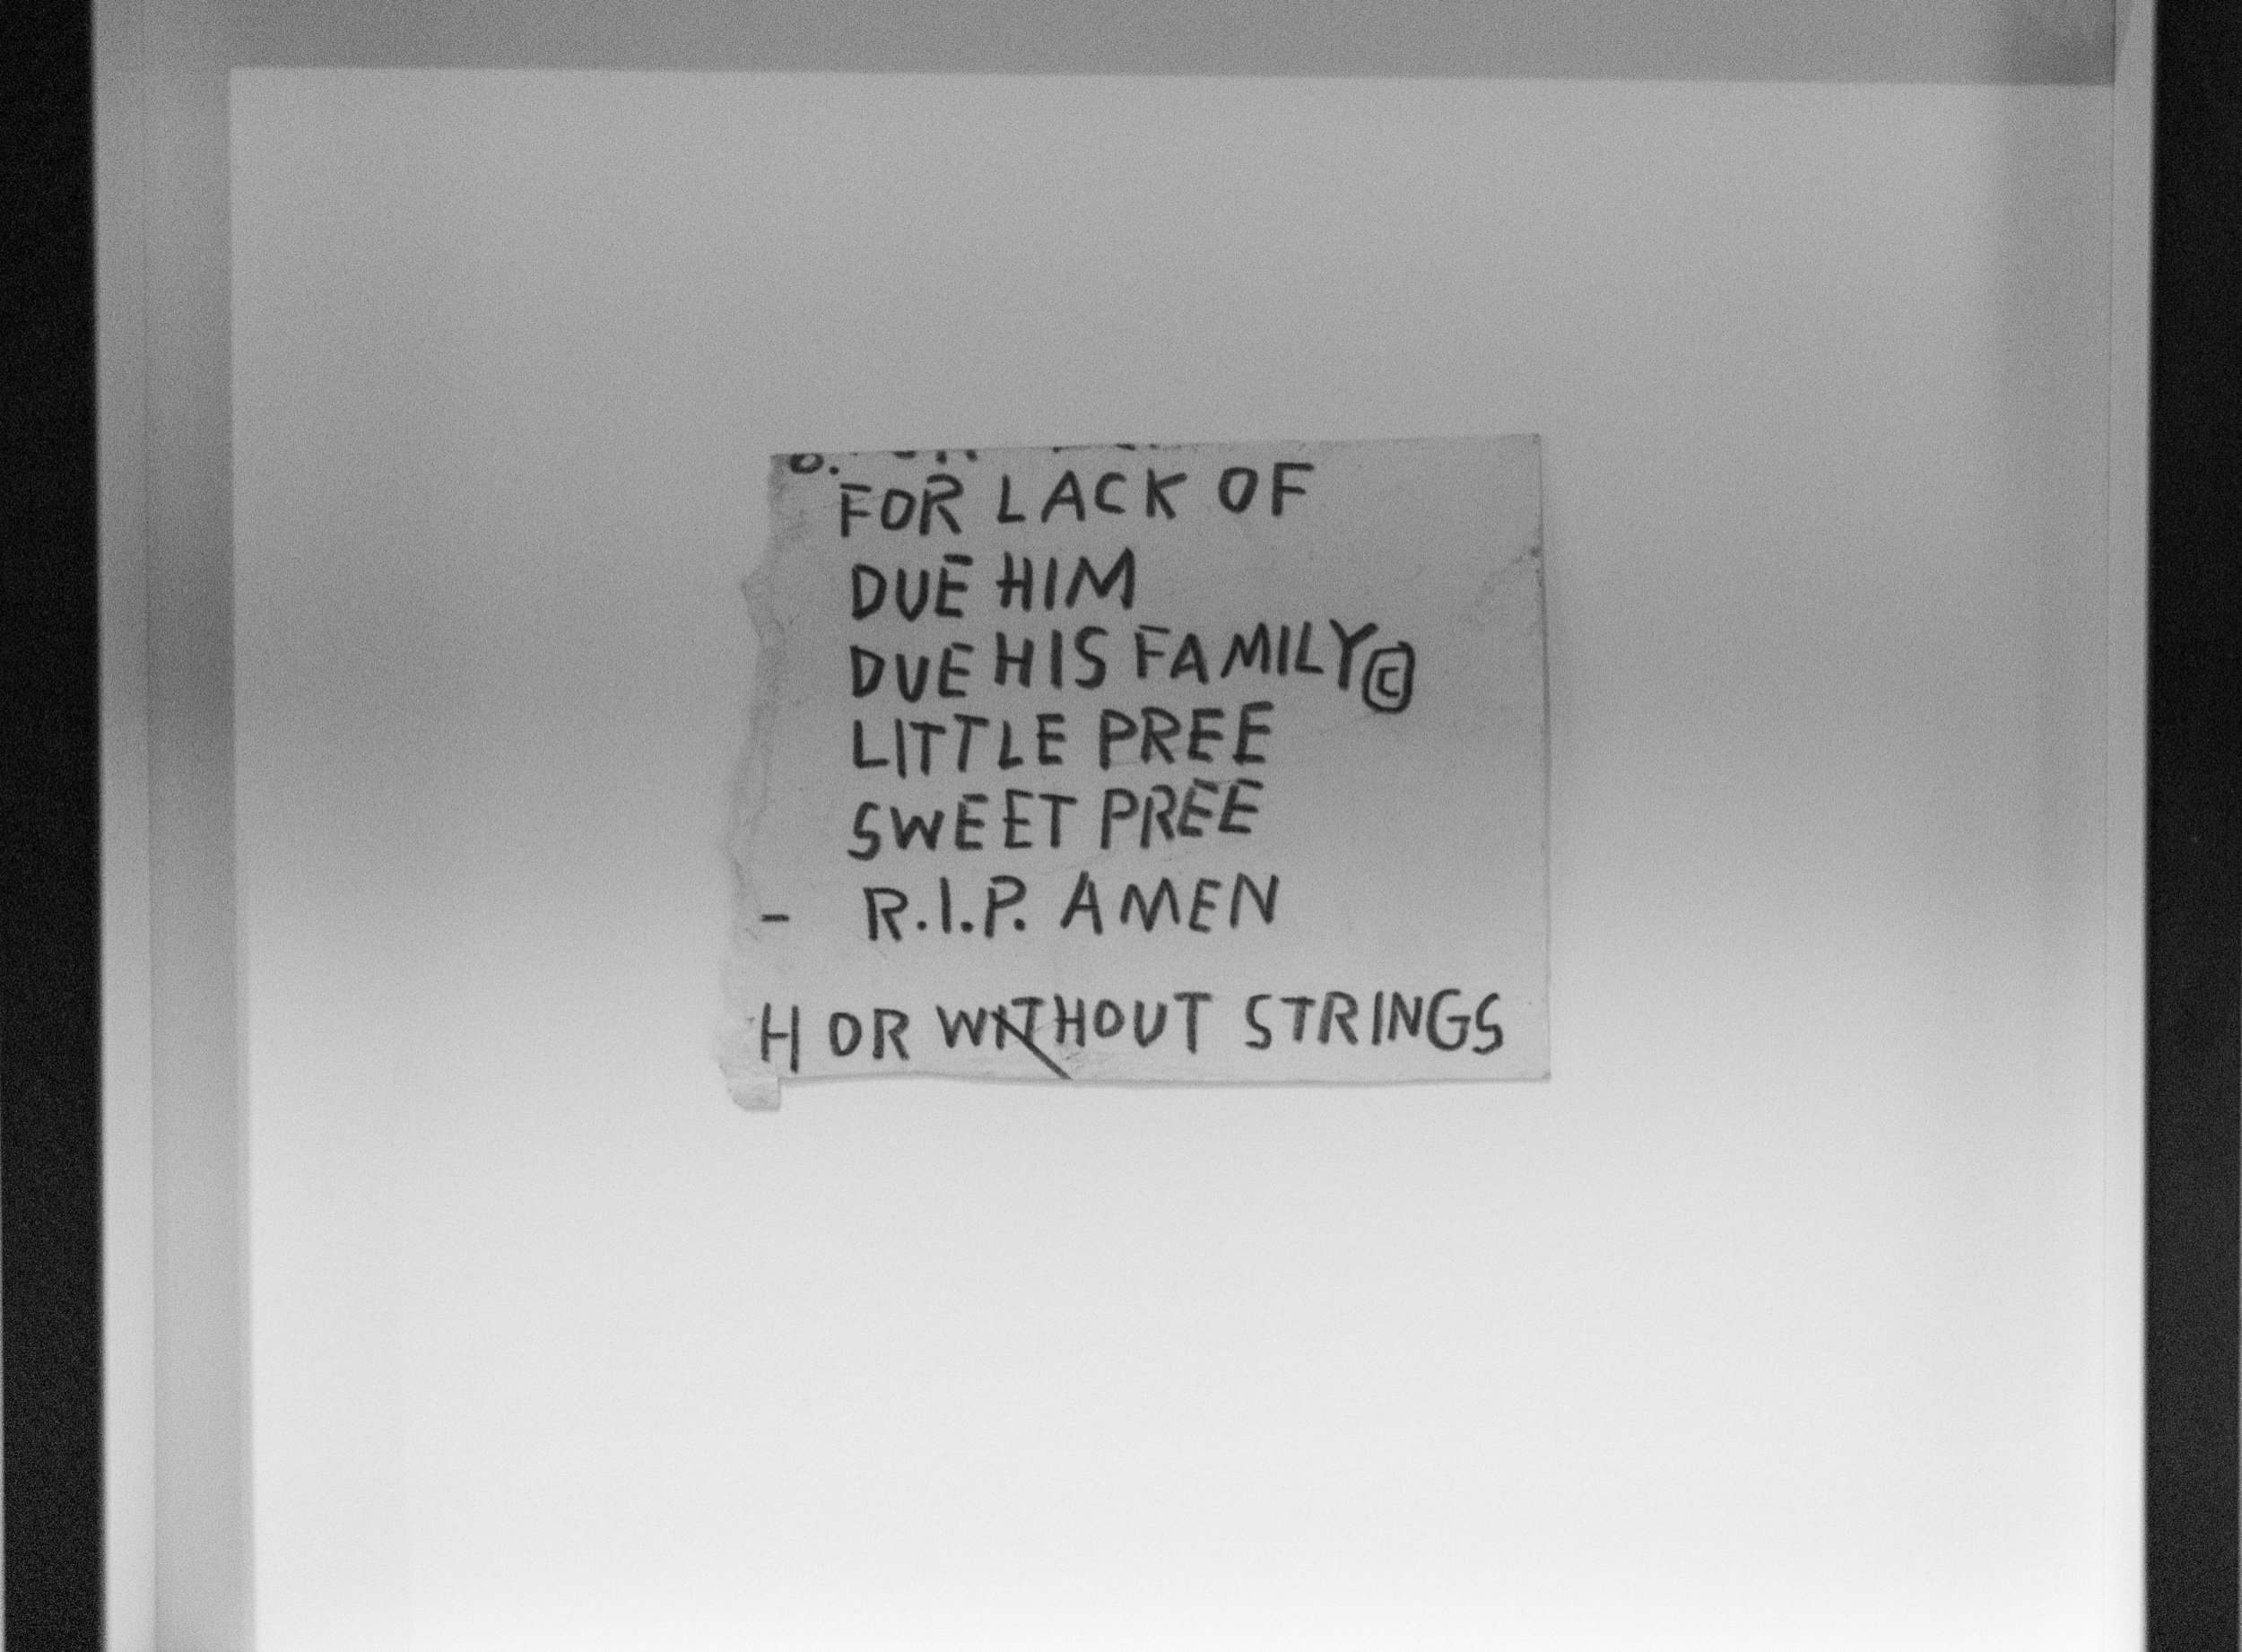 FOR LACK OF
DUE HIM
DUE HIS FAMILY©
LITTLE PREE
SWEET PREE
- R.I.P. AMEN
H OR WITHOUT STRINGS